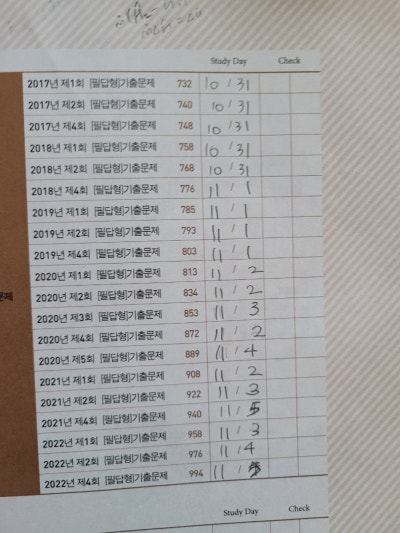 Study Day Check
2017년 제1회 [필답형]기출문제 732 10 / 31
2017년 제2회 [필답형]기출문제 740 10 / 31
2017년 제4회 [필답형]기출문제 748 10 / 31
2018년 제1회 [필답형]기출문제 758 10 / 31
2018년 제2회 [필답형]기출문제 768 10 / 31
2018년 제4회 [필답형]기출문제 776 11 / 1
2019년 제1회 [필답형]기출문제 785 11 / 1
2019년 제2회 [필답형]기출문제 793 11 / 1
2019년 제4회 [필답형]기출문제 803 11 / 1
2020년 제1회 [필답형]기출문제 813 11 / 2
2020년 제2회 [필답형]기출문제 834 11 / 2
문제
2020년 제3회 [필답형]기출문제 853 11 / 3
2020년 제4회 [필답형]기출문제 872 11 / 2
2020년 제5회 [필답형]기출문제 889 11 / 4
2021년 제1회 [필답형]기출문제 908 11 / 2
2021년 제2회 [필답형]기출문제 922 11 / 3
2021년 제4회 [필답형]기출문제 940 11 / 5
2022년 제1회 [필답형]기출문제 958 11 / 3
2022년 제2회 [필답형]기출문제 976 11 / 4
2022년 제4회 [필답형]기출문제 994 11 / 5
Study Day Check